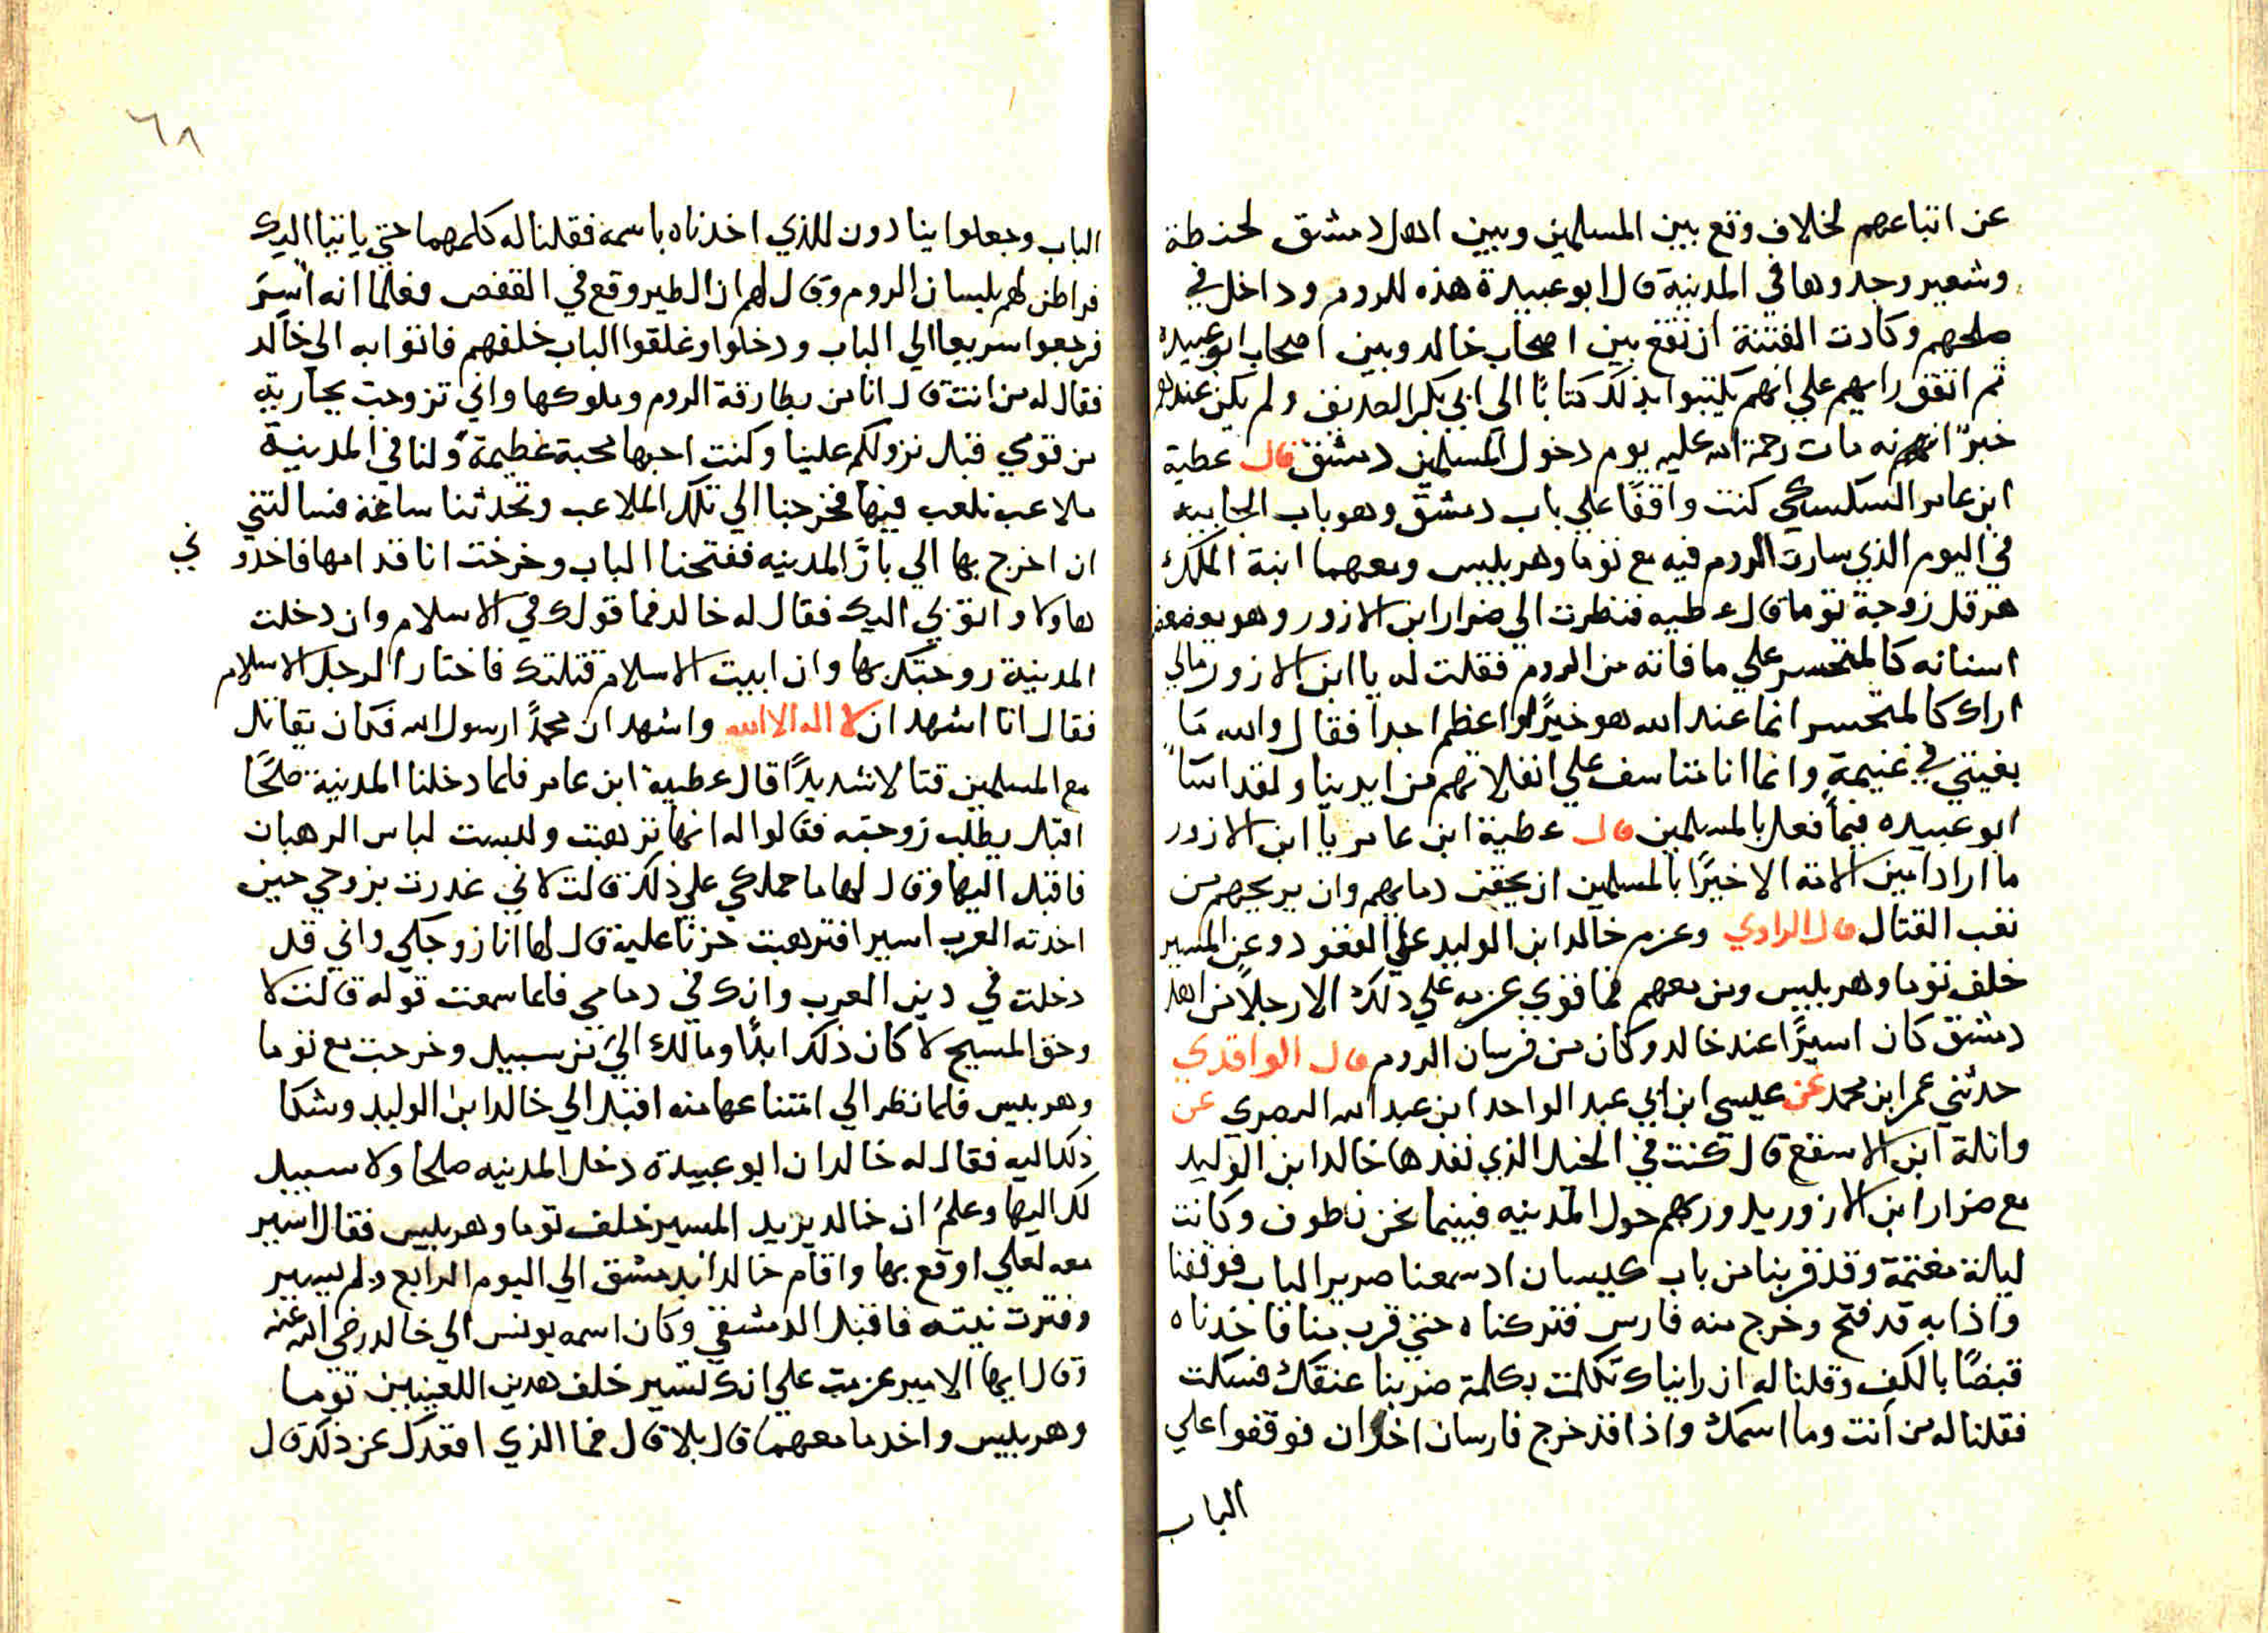 عن اتباعهم لخلاف وقع بين المسلمين وبين اهل دمشق لحنطة
وشعير وجدوها في المدينة قال ابو عبيدة هذه للروم وداخل في
صلحهم وكادت الفتنة ان تقع بين اصحاب خالد وبين اصحاب ابو عبيده
ثم اتفق رايهم علي انهم يكتبوا بذلك كتابًا الي ابي بكر الصديق ولم يكن عندهم
خبرًا انه مات رحمة الله عليه يوم دخول المسلمين دمشق قال عطية
ابن عامر السكسكي كنت واقفًا علي باب دمشق وهو باب الجابيه
في اليوم الذي سارت الروم فيه مع توما وهربيس ومعهما ابنة الملك
هرقل زوجة توما قال عطيه فنظرت الي ضرار ابن الازور وهو يعضعض
اسنانه كالمتحسر علي ما فاته من الروم فقلت له يا ابن الازور مالي
اراك كالمتحسر انما عند الله هو خيرًا واعظم اجرا فقال والله مَا
بغيتي في غنيمةٍ وانما انا متاسف علي انفلاتهم من ايدينا ولقد اسَاً
ابو عبيده فيما فعل بالمسلمين قال عطية ابن عامر يا ابن الازور
ما اراد امين الامة الا خيرًا بالمسلمين ان يحقن دمايهم وان يريحهم من
تعب القتال قال الراوي وعزم خالد ابن الوليد علي القعود وعن المسير
خلف توما وهربيس ومن معهم فما قوي عزمه علي ذلك الا رجلاً من اهل
دمشق كان اسيرًا عند خالد وكان من فرسان الروم قال الواقدي
حدثني عمر ابن محمد عن عيسي ابن ابي عبد الواحد ابن عبد الله البصري عن
واثلة ابن الاسقع قال كنت في الخيل الذي نفدها خالد ابن الوليد
مع ضرار ابن الازور يدور بهم حول المدينه فبينما نحن نطوف وكانت
ليلة مغتمة وقد قربنا من باب كيسان اد سمعنا صرير الباب فوقفنا
واذا به قد فتح وخرج منه فارس فتركناه حتي قرب منا فاخدناه
قبضًا بالكف وقلنا له ان رايناك تكلمت بكلمة ضربنا عنقك فسكت
فقلنا له من أنت وما اسمك واذا قد خرج فارسان اخران فوقفوا علي
الباب
٦٨
الباب وجعلوا ينادون للذي اخدناه باسمه فقلنا له كلمهما حتي ياتيا اليك
فراطن لهم بلسان الروم وقال لهم ان الطير وقع في القفص فعلما انه اُسِرَ
فرجعوا سريعا الي الباب ودخلوا وغلقوا الباب خلفهم فاتوا به الي خالد
فقال له من انت قال انا من بطارقة الروم وملوكها واني تزوجت بجارية
من قومي قبل نزولكم علينا وكنت احبها محبة عظيمة ولنا في المدينة
ملاعب نلعب فيها فخرجنا الي تلك الملاعب وتحدثنا ساعة فسالتني
ان اخرج بها الي بارّ المدينه ففتحنا الباب وخرخت انا قدامها فاخدو ني
هاولا واتو بي اليك فقال له خالد فما قولك في الاسلام وان دخلت
المدينة زوجتك بها وان ابيت الاسلام قتلتك فاختار الرجل الاسلام
فقال انا اشهد ان لا اله الا الله واشهد ان محمدً ارسول الله فكان يقاتل
مع المسلمين قتالا شديدًا قال عطية ابن عامر فلما دخلنا المدينة صلحًا
اقبل يطلب زوجته فقالوا له انها ترهبت ولبست لباس الرهبان
فاقبل اليها وقال لها ما حملكي علي ذلك قالت لاني غدرت بزوجي حين
اخدته العرب اسيرا فترهبت حزنا عليه قال لها انا زوجكي واني قد
دخلت في دين العرب وانك في دمامي فلما سمعت قوله قالت لا
وحق المسيح لا كان ذلك ابدًا ومالك اليَ من سبيل وخرجت مع توما
وهربيس فلما نظر الي امتناعها منه اقبل الي خالد ابن الوليد وشكا
ذلك اليه فقال له خالد ان ابو عبيدة دخل المدينه صلحا ولا سبيل
لك اليها وعلم ان خالد يريد المسير خلف توما وهربيس فقال اسير
معه لعلي اوقع بها واقام خالد بدمشق الي اليوم الرابع ولم يسير
وفترت نيته فاقبل الدمشقي وكان اسمه يونس الي خالد رضي الله عنه
وقال ايها الامير عزمت علي انك تسير خلف هدين اللعينين توما
وهربيس واخد ما معهما قال بلا قال فما الذي اقعدك عن ذلك قال